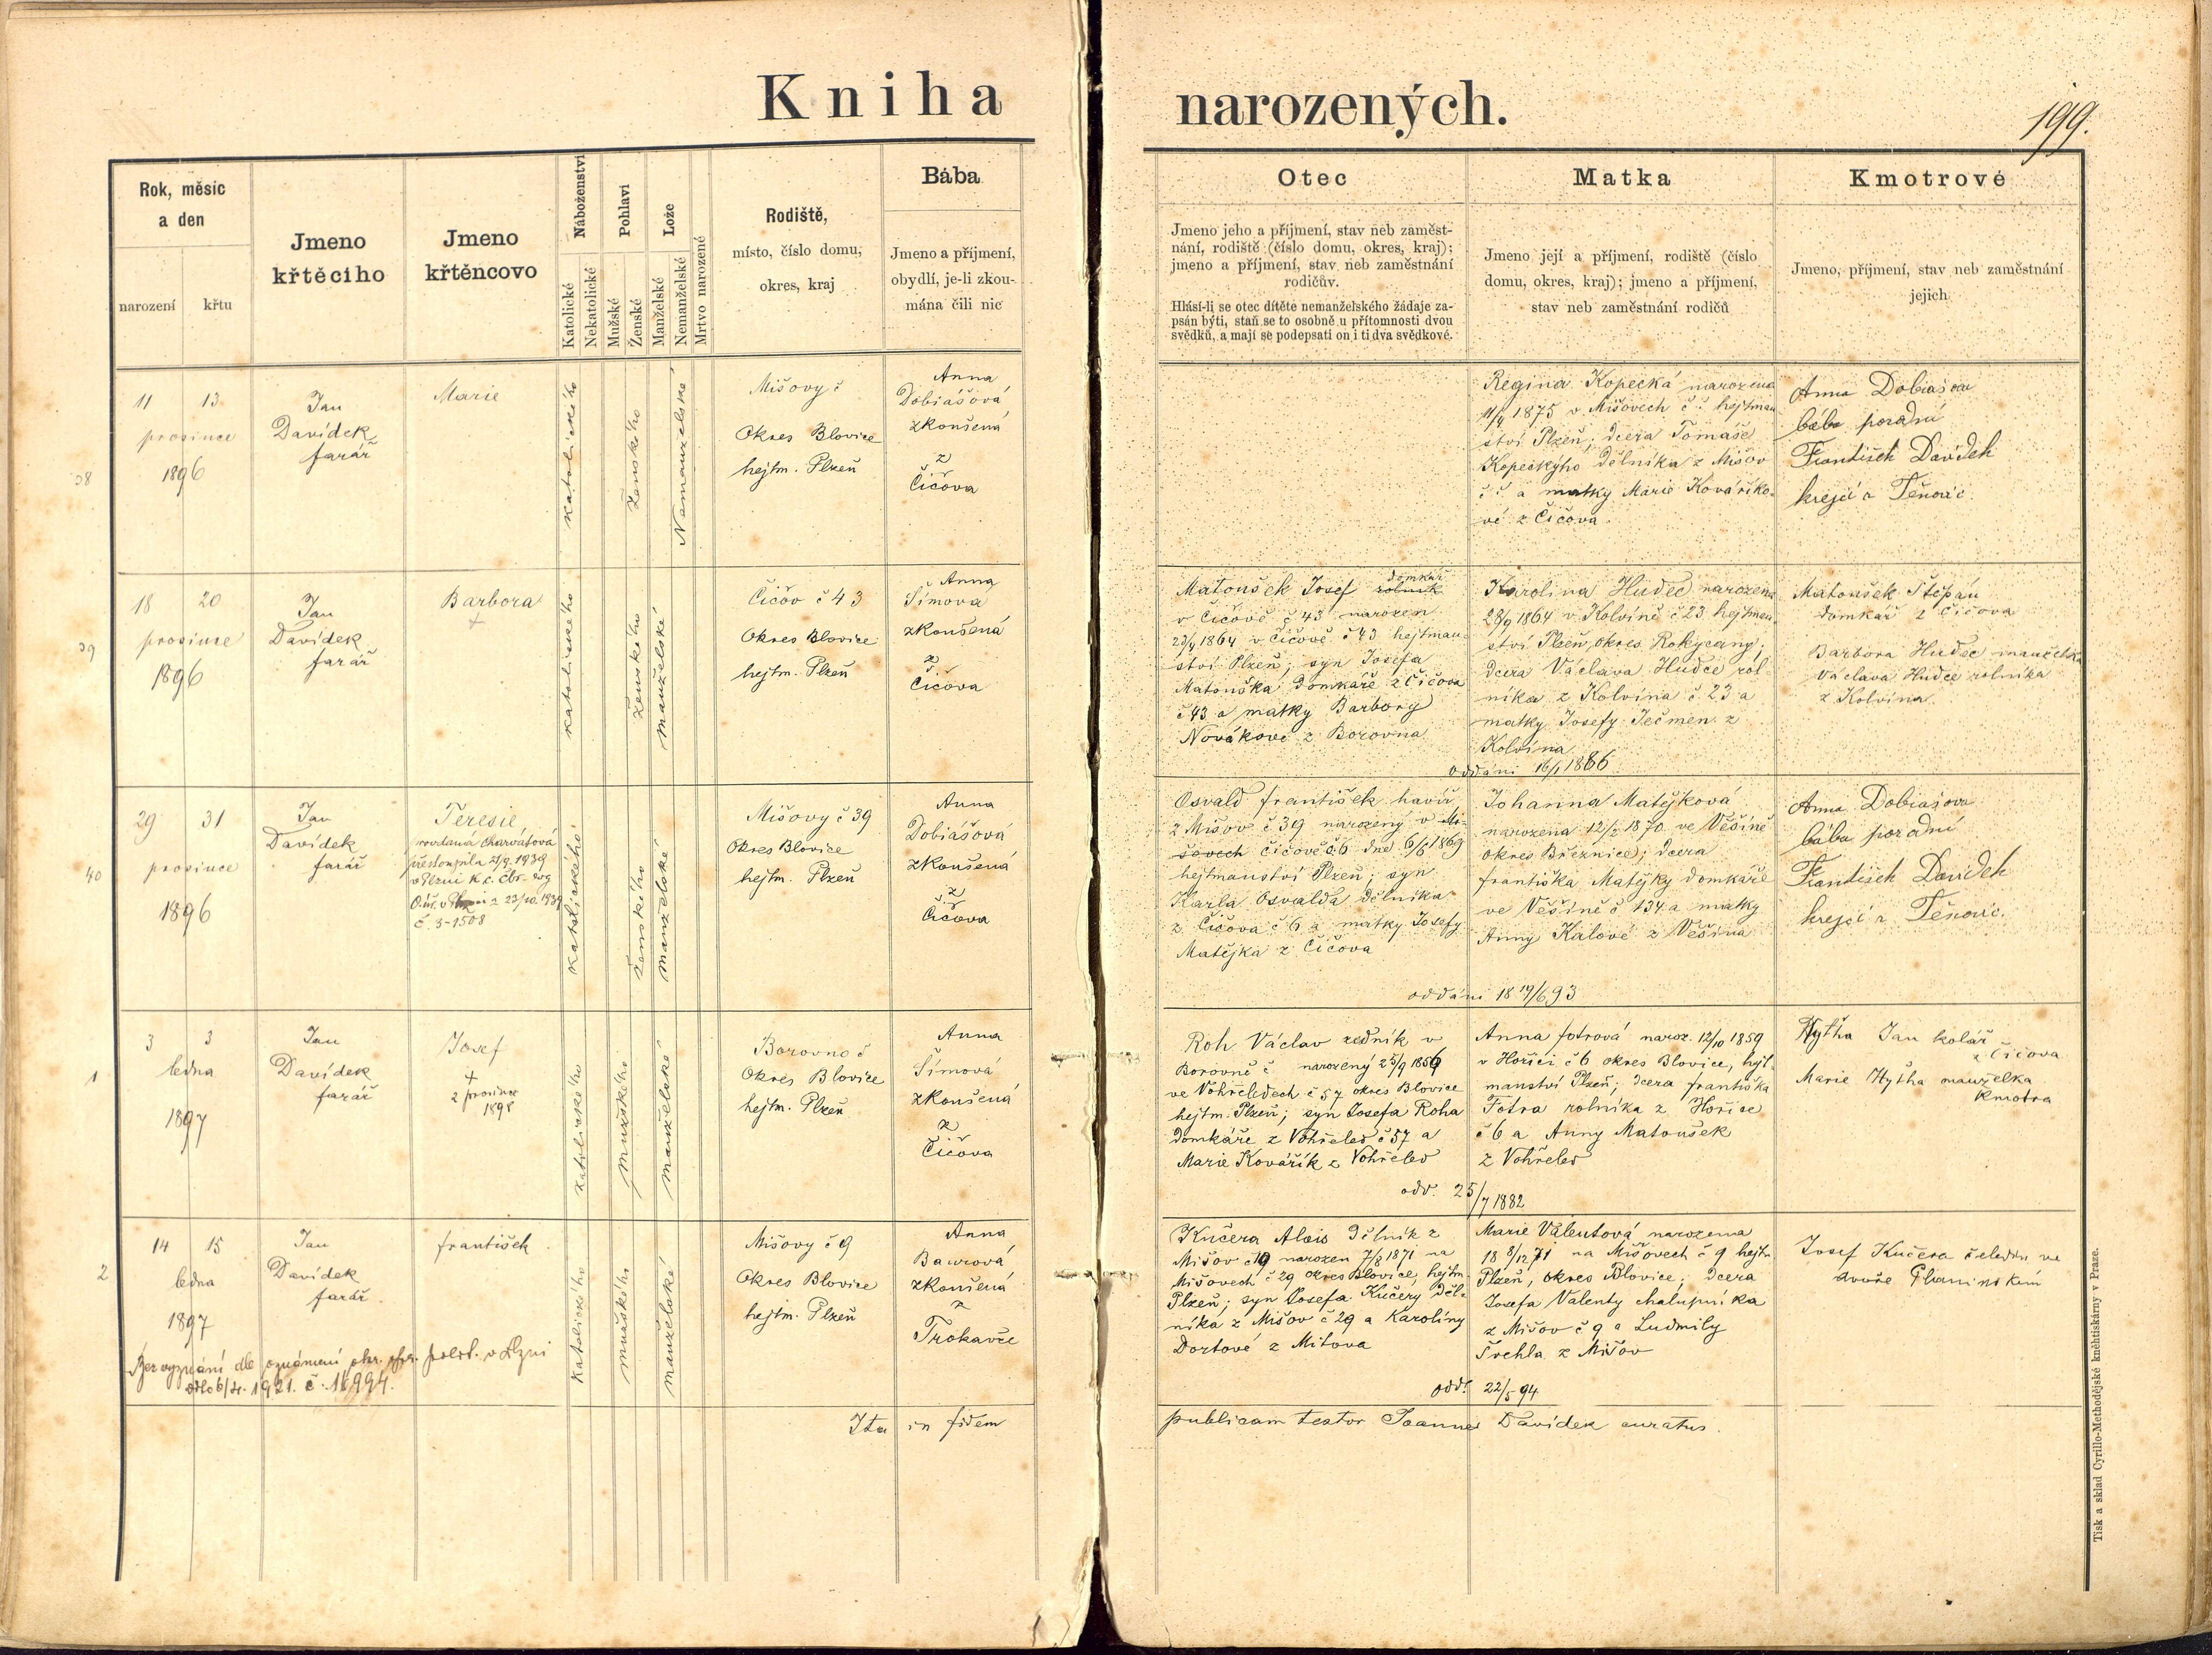 Kniha narozených.
199.
Rok, měsíc
a den
narození
křtu
Jmeno
křtěcího
Jmeno
křtěncovo
Náboženství
Katolické
Nekatolické
Pohlaví
Mužské
Ženské
Lože
Manželské
Nemanželské
Mrtvo narozené
Rodiště,
místo, číslo domu,
okres, kraj
Bába
Jmeno a příjmení,
obydlí, je-li zkou-
mána čili nic
Otec
Jmeno jeho a příjmení, stav neb zaměst-
nání, rodiště (číslo domu, okres, kraj);
jmeno a příjmení, stav neb zaměstnání
rodičův.
Hlásí-li se otec dítěte nemanželského žádaje za-
psán býti, staň se to osobně u přítomnosti dvou
svědků, a mají se podepsati on i ti dva svědkové.
Matka
Jmeno její a příjmení, rodiště (číslo
domu, okres, kraj); jmeno a příjmení,
stav neb zaměstnání rodičů
Kmotrové
Jmeno, příjmení, stav neb zaměstnání
jejich
38
11 13
prosince
1896
Jan
Davídek
farář
Marie
katolického
ženského
Nemanželské
Mišovy č
Okres Blovice
hejtm. Plzeň
Anna
Dobiášová
zkoušená
z
Čičova
Regina Kopecká narozena
1875 v Mišovech č hejtman
ství Plzeň; dcera Tomáše
Kopeckýho dělníka z Mišov
č a matky Marie Kovaříko-
vé z Čičova
Anna Dobiašova
bába porodní
František Davídek
krejčí z Těnovic
39
18 20
prosince
1896
Jan
Davídek
farář
Barbora
+
katolického
ženského
manželské
Čičov č 43
Okres Blovice
hejtm. Plzeň
Anna
Šímová
zkoušená
z
Čičova
Matoušek Josef rolník domkář
v Čičově č 43 narozen
23/4 1864 v Čičově č 43 hejtman-
ství Plzeň; syn Josefa
Matouška domkáře z Čičova
č 43 a matky Barbory
Novákové z Borovna
Karolina Hudec narozena
28/9 1864 v Kolvíně č 23 hejtman
ství Plzeň, okres Rokycany;
dcera Václava Hudce rol-
níka z Kolvína č 23 a
matky Josefy Ječmen z
Kolvína
oddáni 16/1 1886
Matoušek Štěpán
domkář z Čičova
Barbora Hudec manželka
Václava Hudce rolníka
z Kolvína
40
29 31
prosince
1896
Jan
Davídek
farář
Teresie
provdaná Charvátová
přestoupila 21/9. 1939
v Plzni k c. čbr. evg
z 23/10. 1939
č 3-1508
katolického
ženského
manželské
Mišovy č 39
Okres Blovice
hejtm. Plzeň
Anna
Dobiášová
zkoušená
z
Čičova
Osvald františek havíř
z Mišov č 39 narozený v Mi-
šovech Čičově č 6 dne 6/6 1869
hejtmanství Plzeň; syn
Karla Osvalda dělníka
z Čičova č 6 a matky Josefy
Matějka z Čičova
Johanna Matějková
narozena 12/2 1870 ve Věšíně
okres Březnice; dcera
františka Matějky domkáře
ve Věšíně č 134 a matky
Anny Kalové z Věšína
oddáni 18 19/6 93
Anna Dobiašova
bába porodní
František Davídek
krejčí z Těnovic.
1
3 3
ledna
1897
Jan
Davídek
farář
Josef
+
2 prosince
1898
katolického
mužského
manželské
Borovno č
Okres Blovice
hejtm. Plzeň
Anna
Šímová
zkoušená
z
Čičova
Roh Václav zedník v
Borovně č narozený 25/9 1856
ve Vohřeledech č 57 okres Blovice
hejtm. Plzeň; syn Josefa Roha
domkáře z Vohřeled č 57 a
Marie Kovářík z Vohřeled
Anna fotrová naroz. 12/10 1859
v Hořici č 6 okres Blovice, hejt-
manství Plzeň; dcera františka
Fotra rolníka z Hořice
č 6 a Anny Matoušek
z Vohřeled
odd. 25/7 1882
Hytha Jan kolář
z Čičova
Marie Hytha manželka
kmotra
2
14 15
ledna
1897
Jan
Davídek
farář
františek
katolického
mužského
manželské
Mišovy č 9
Okres Blovice
hejtm. Plzeň
Anna
Baurová
zkoušená
z
Trokavce
Kučera Alois dělník z
Mišov č 19 narozen 7/8 1871 na
Mišovech č 29 okres Blovice, hejtm.
Plzeň; syn Josefa Kučery děl-
níka z Mišov č 29 a Karolíny
Dortové z Mitova
Marie Valentová narozena
18 8/12 71 na Mišovech č 9 hejtm
Plzeň, okres Blovice; dcera
Josefa Valenty chalupníka
z Mišov č 9 a Ludmily
Švehla z Mišov
odd. 22/5 94
Josef Kučera čeledín ve
dvoře
Bez vyznání dle oznámení okr. polit. v Plzni
1921. č. 16994.
Ita in fidem publicam testor Joannes Davídek curatus.
Tisk a sklad Cyrillo-Methodějské kněhtiskárny v Praze.